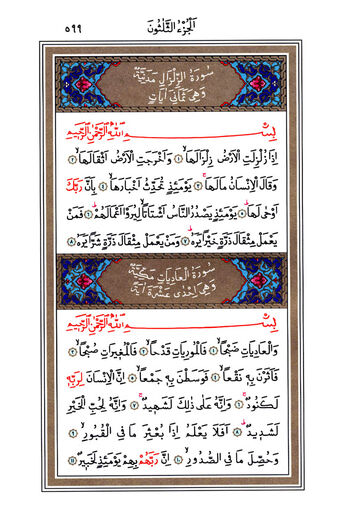 اَلْجُزْءُ الثَّلٰثُونَ ٥٩٩
سُورَةُ الزِّلْزَالِ مَدَنِيَّةٌ
وَهِيَ ثَمَانِي آيَاتٍ
بِسْــــمِ اللّٰهِ الرَّحْمٰنِ الرَّحِيمِ
اِذَا زُلْزِلَتِ الْاَرْضُ زِلْزَالَهَاۙ ﴿١﴾ وَاَخْرَجَتِ الْاَرْضُ اَثْقَالَهَاۙ ﴿٢﴾
وَقَالَ الْاِنْسَانُ مَالَهَاۚ ﴿٣﴾ يَوْمَئِذٍ تُحَدِّثُ اَخْبَارَهَاۙ ﴿٤﴾ بِاَنَّ رَبَّكَ
اَوْحٰى لَهَاۜ ﴿٥﴾ يَوْمَئِذٍ يَصْدُرُ النَّاسُ اَشْتَاتًا لِيُرَوْا اَعْمَالَهُمْۜ ﴿٦﴾ فَمَنْ
يَعْمَلْ مِثْقَالَ ذَرَّةٍ خَيْرًا يَرَهُۜ ﴿٧﴾ وَمَنْ يَعْمَلْ مِثْقَالَ ذَرَّةٍ شَرًّا يَرَهُ ﴿٨﴾
سُورَةُ الْعَادِيَاتِ مَكِّيَّةٌ
وَهِيَ اِحْدٰى عَشْرَةَ آيَةً
بِسْــــمِ اللّٰهِ الرَّحْمٰنِ الرَّحِيمِ
وَالْعَادِيَاتِ ضَبْحًاۙ ﴿١﴾ فَالْمُورِيَاتِ قَدْحًاۙ ﴿٢﴾ فَالْمُغِيرَاتِ صُبْحًاۙ ﴿٣﴾
فَاَثَرْنَ بِهِ نَقْعًاۙ ﴿٤﴾ فَوَسَطْنَ بِهِ جَمْعًاۙ ﴿٥﴾ اِنَّ الْاِنْسَانَ لِرَبِّهِ
لَكَنُودٌۚ ﴿٦﴾ وَاِنَّهُ عَلٰى ذٰلِكَ لَشَهِيدٌۚ ﴿٧﴾ وَاِنَّهُ لِحُبِّ الْخَيْرِ
لَشَدِيدٌۜ ﴿٨﴾ اَفَلَا يَعْلَمُ اِذَا بُعْثِرَ مَا فِي الْقُبُورِۙ ﴿٩﴾
وَحُصِّلَ مَا فِي الصُّدُورِۙ ﴿١٠﴾ اِنَّ رَبَّهُمْ بِهِمْ يَوْمَئِذٍ لَخَبِيرٌ ﴿١١﴾